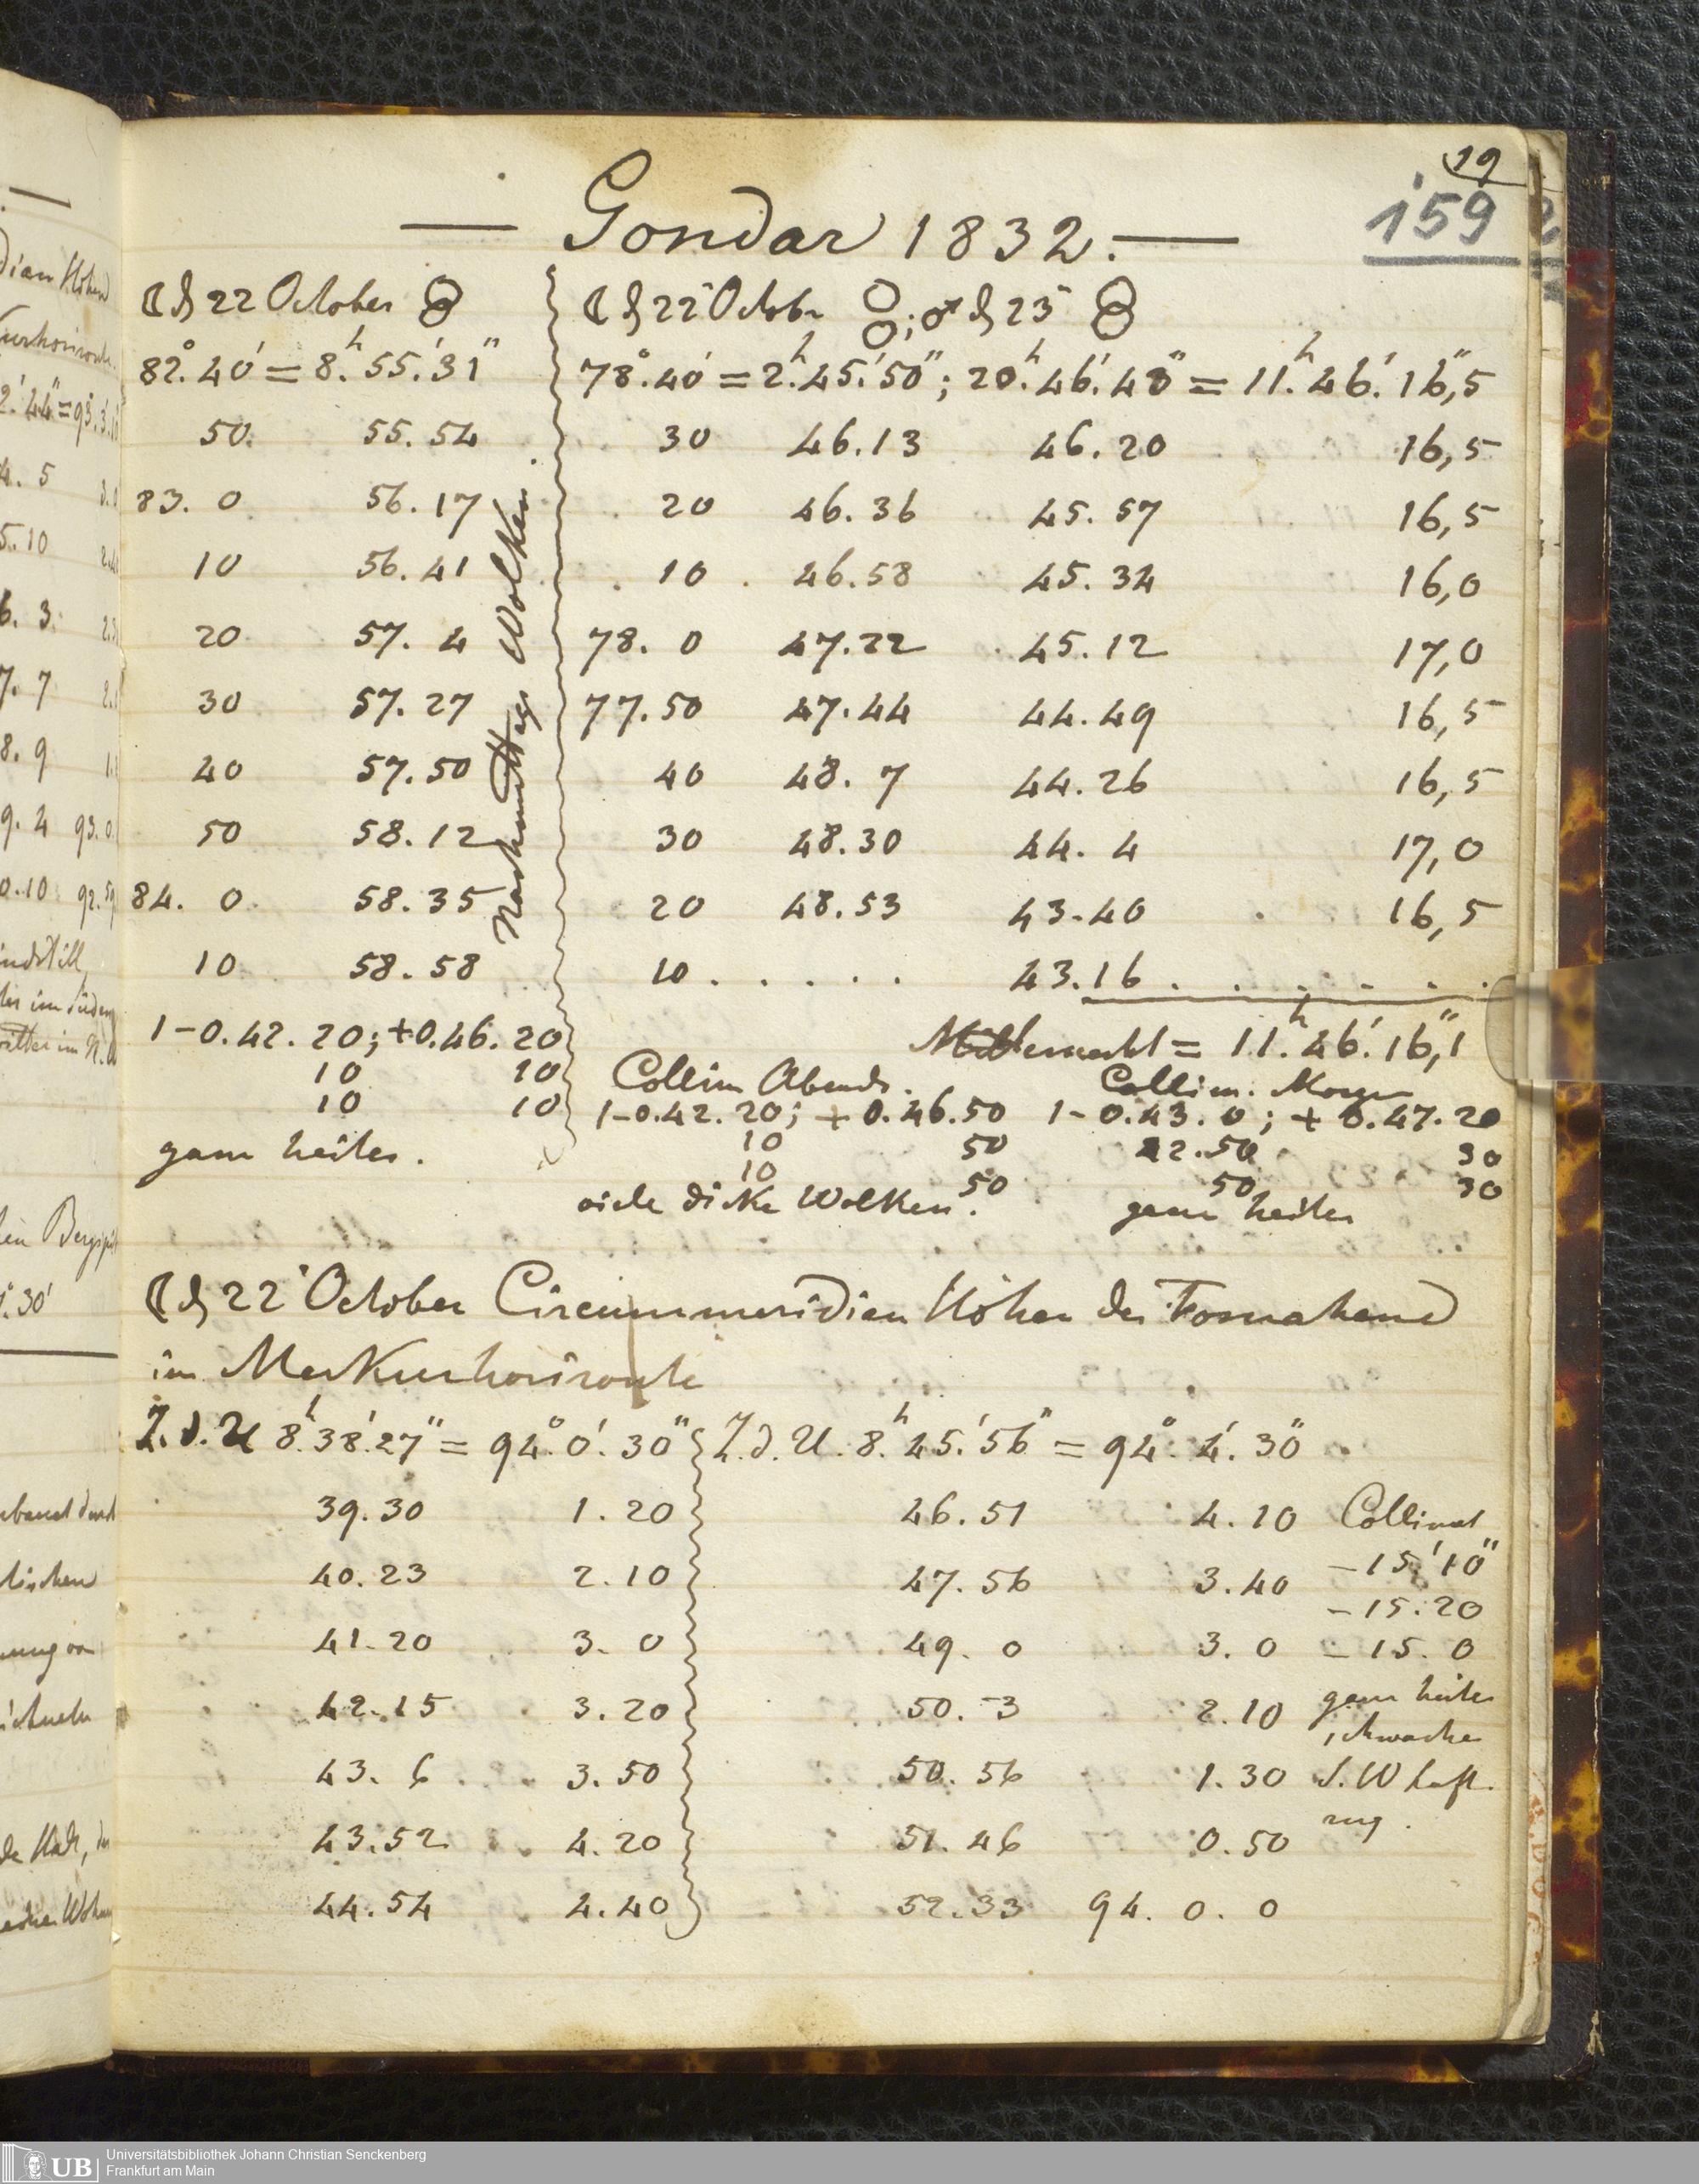 19
159
— Gondar 1832. —
☾ d 22 October
82°.40' = 8h.55.'31"
50 55.54
83. 0 56.17
10 56.41
20 57. 4
30 57.27
40 57.50
50 58.12
84. 0 58.35
10 58.58
Nachmittags Wolken.
1-0.42.20; +0.46.20
10 10
10 10
ganz heiter.
☾ d 22 Octobr ; ♂ d 23
78°.40' = 2h.45.'50"; 20h.46.'43" = 11h.46.'16,"5
30 46.13 46.20 16,5
20 46.36 45.57 16,5
10 46.58 45.34 16,0
78. 0 47.22 45.12 17,0
77.50 47.44 44.49 16,5
40 48. 7 44.26 16,5
30 48.30 44. 4 17,0
20 48.53 43.40 16,5
10 . . . . . 43.16 . . . . . .
Mitternacht = 11h.46.'16,"1
Collim Abends. Collim. Morgen
1-0.42.20; +0.46.50 1-0.43.0; +0.47.20
10 50 42.50 30
10 50 50 30
viele dicke Wolken. ganz heiter
☾ d 22 October Circummeridien Höhen des Fomahand
im Merkurhorizonte
Z.d.U 8h.38.'27" = 94°.0'.30" Z.d.U. 8h.45.'56" = 94°.4'.30"
39.30 1.20 46.51 4.10 Collimat
40.23 2.10 47.56 3.40 -15.'10"
-15.20
41.20 3. 0 49. 0 3. 0 -15. 0
42.15 3.20 50. 3 2.10 ganz heiter
schwacher
43. 6 3.50 50.56 1.30 S.W Luft-
zug.
43.52 4.20 51.46 0.50
44.54 4.40 52.33 94. 0. 0
UB
Universitätsbibliothek Johann Christian Senckenberg
Frankfurt am Main